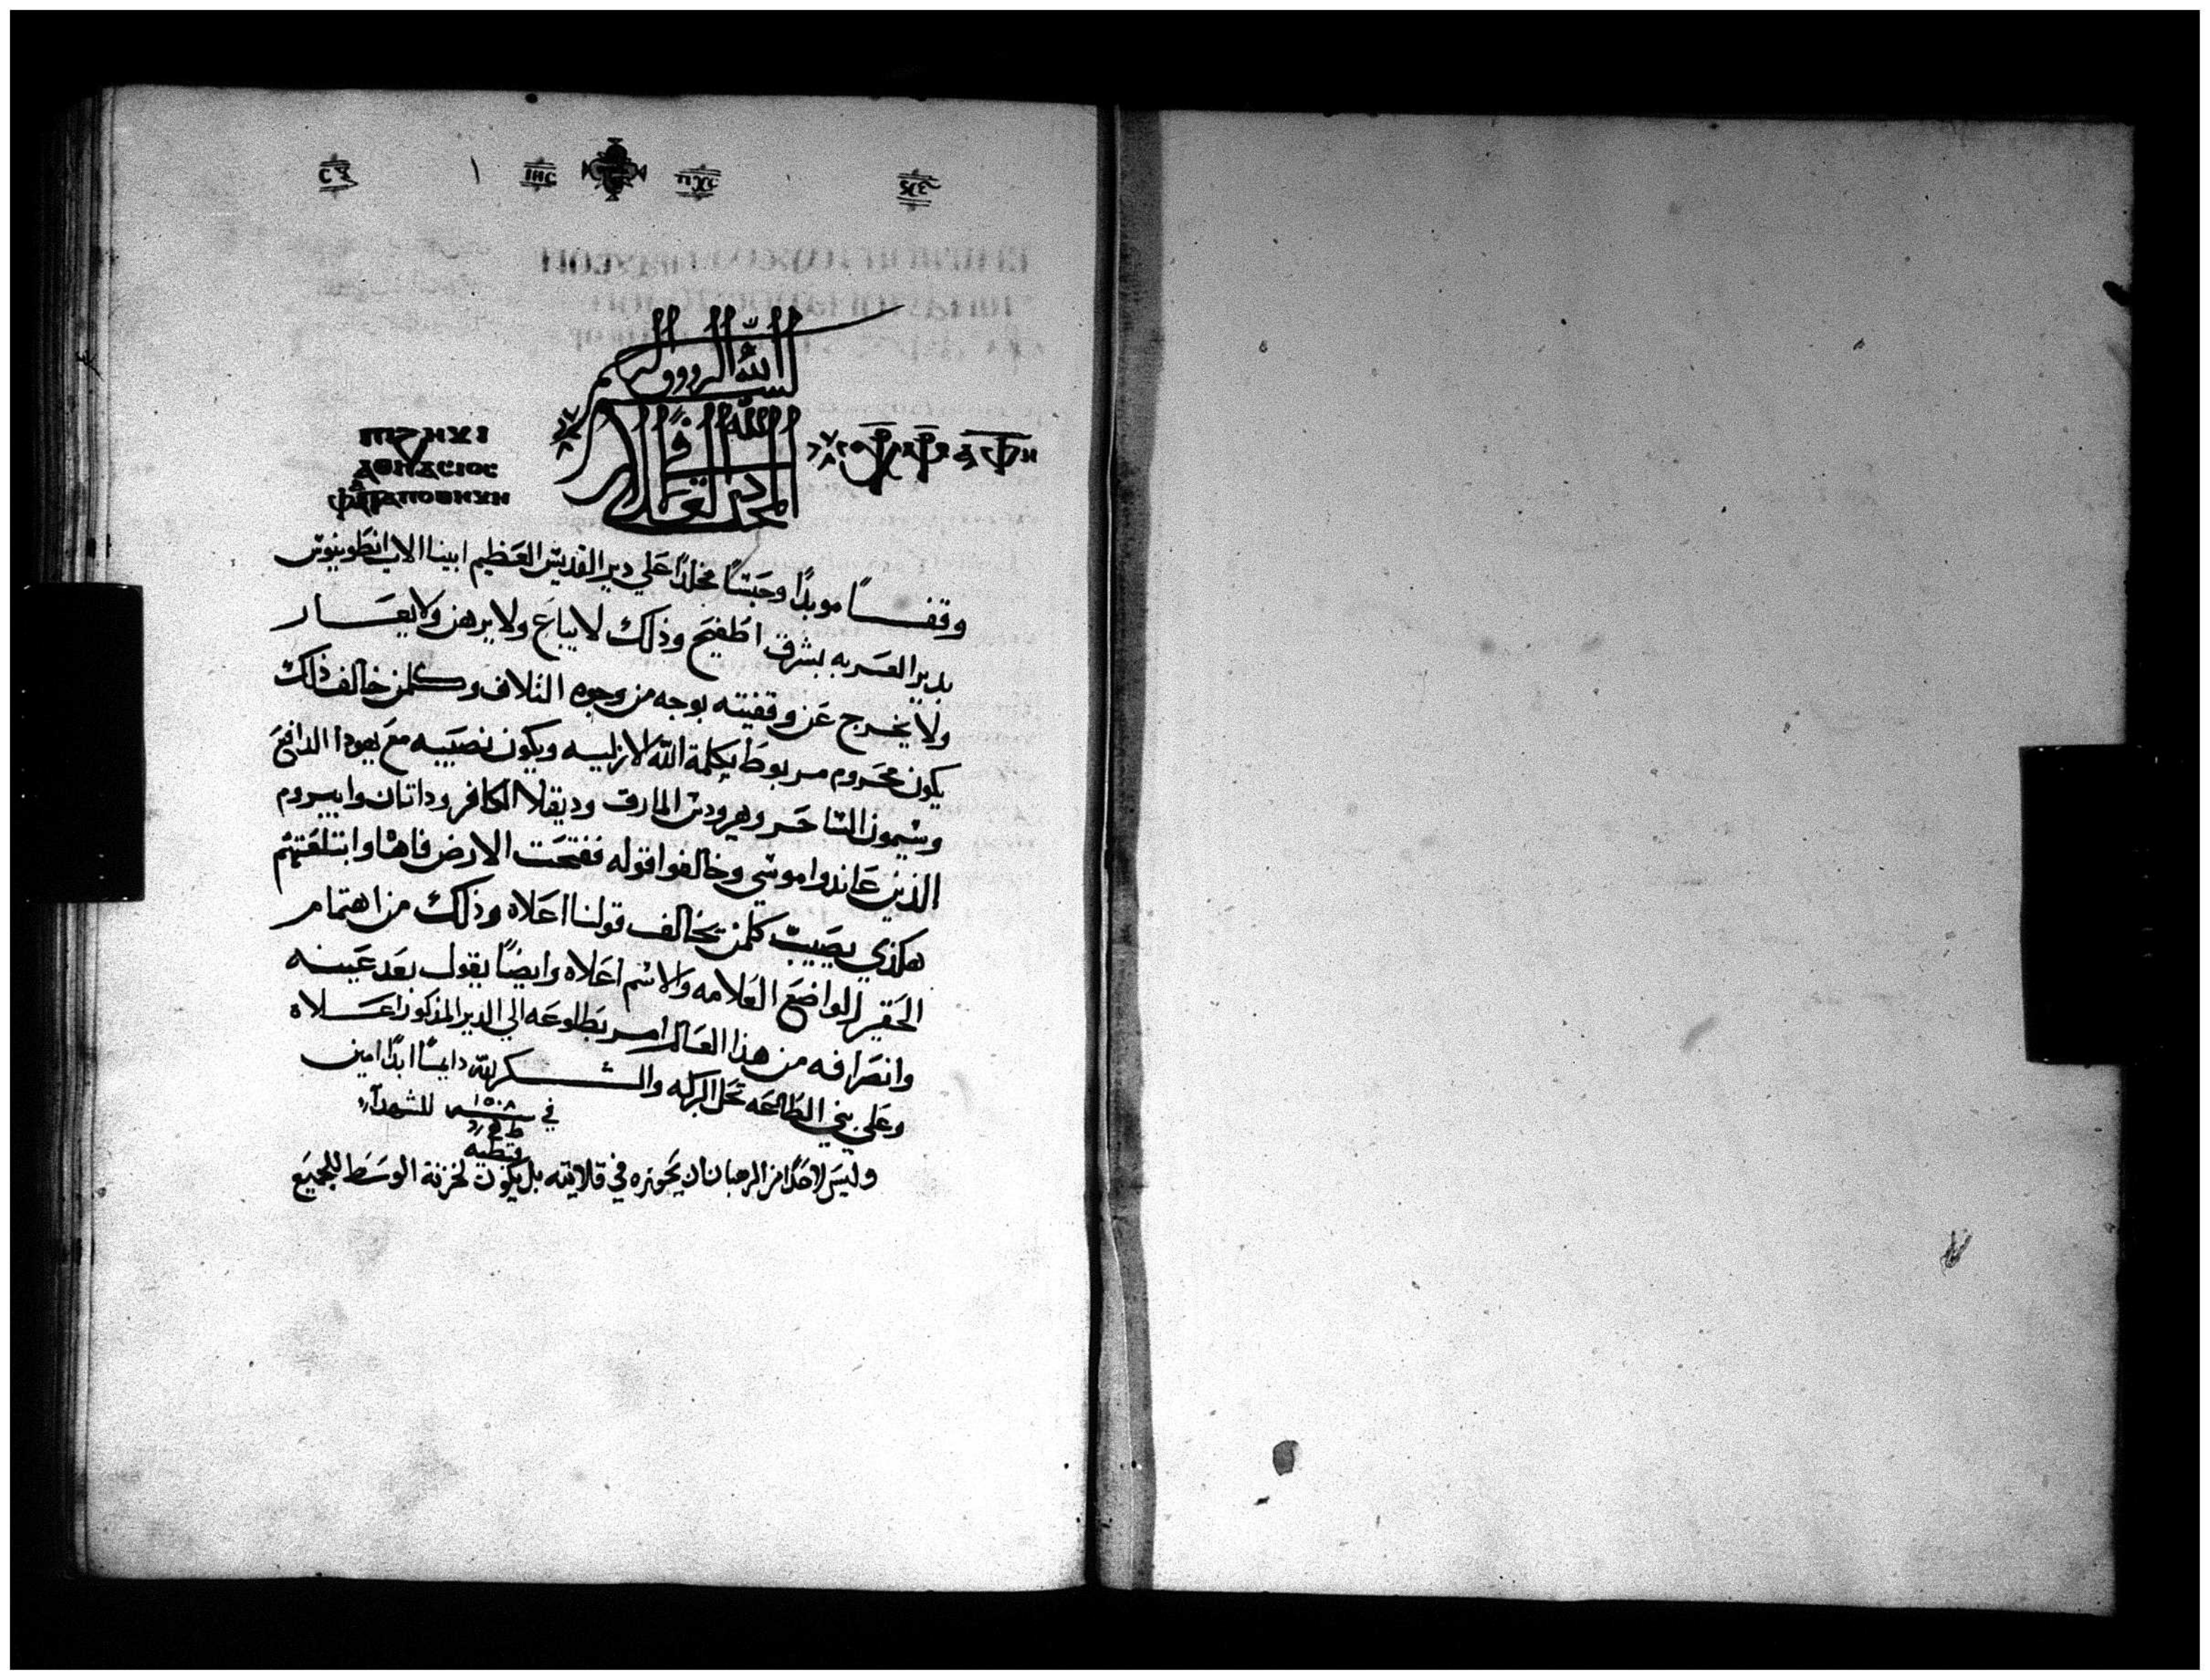 ⲓⲏⲥ ⲡⲭⲥ
بسم الله الرووف الرحيم
المجد لله في العلا
ⲡⲓϩⲏⲕⲓ
ⲁⲑⲏⲁⲥⲓⲟⲥ
وقفـــا موبدًا وحبسًا مخلدًا علي دير القديس العظيم ابينا الاب انطونيوس
بدير العربه بشرق اطفيح وذلك لا يباع ولا يرهن ولا يعـــار
ولا يخرج عن وقفيته بوجه من وجوه التلاف وكلمن خالف ذلك
يكون محروم مربوط بكلمة الله الازليه ويكون نصيبه مع يهودا الدافع
وسيمون الساحر وهيرودس المارق وديقلا الكافر وداتان وابيروم
الذين عاندوا موسي وخالفوا قوله ففتحت الارض فاها وابتلعتهم
هكذي يصيب كلمن يخالف قولنا اعلاه وذلك من اهتمام
الحقير الواضع العلامه والاسم اعلاه وايضًا يقول بعد عينه
وانصرافه من هذا العالم امر بطلوعه الي الدير المذكور اعـــلاه
وعلي بني الطاعه تحل البركه والشـــكر لله دايمًا ابدًا امين
في سنة ١٥٠٨ للشهدا
قبطيه
وليس لاحدًا من الرهبان ان يحوزه في قلايته بل يكون لخزنة الوسط للجميع